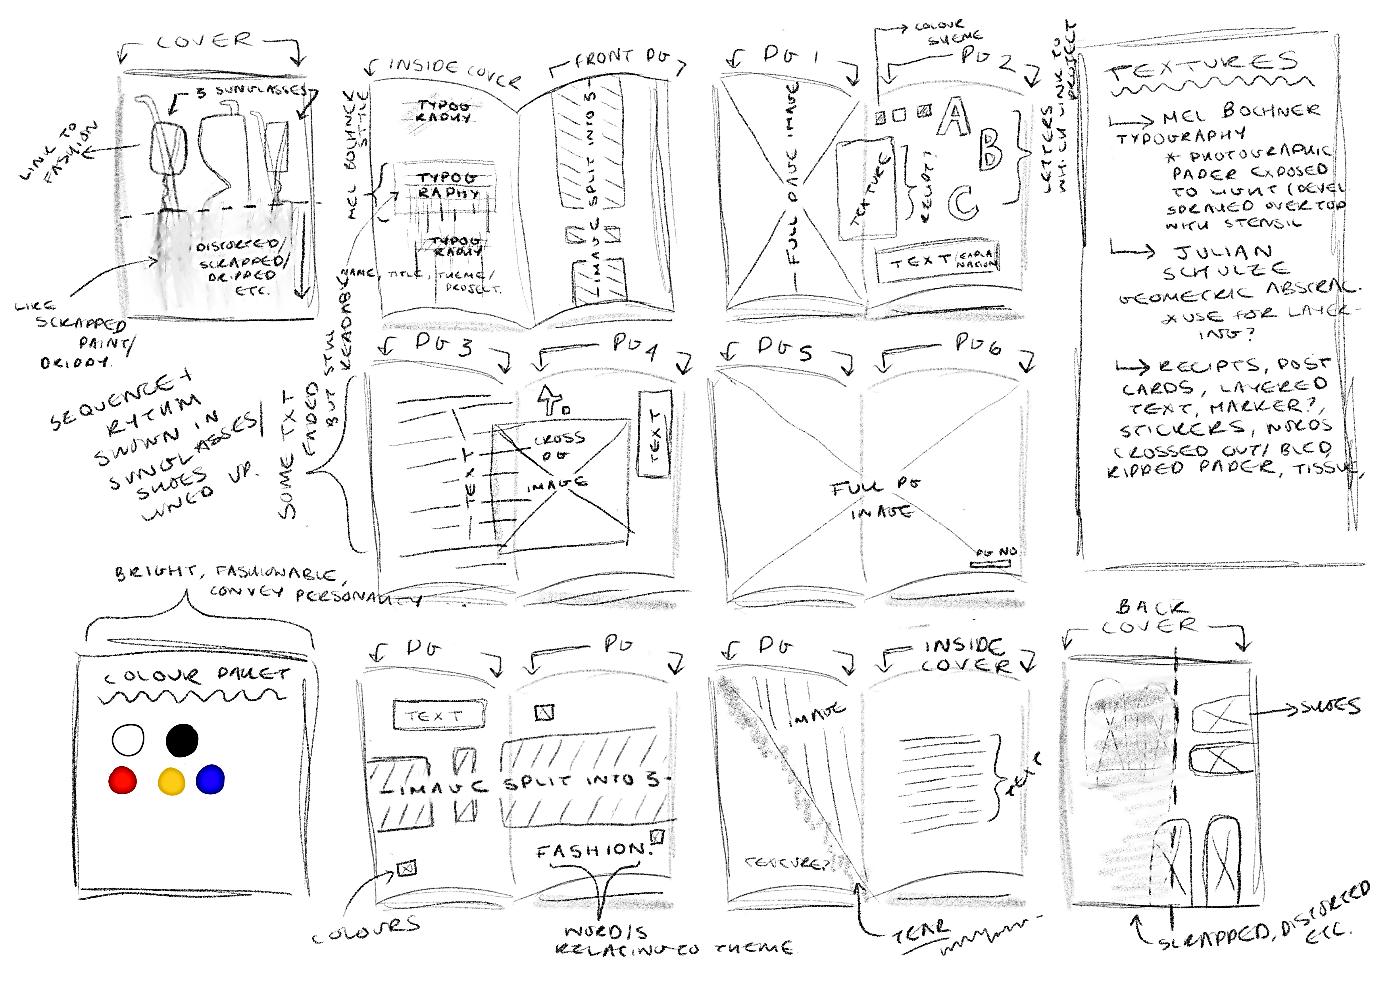 COVER
3 SUNGLASSES
LINK TO
FASHION
DISTORTED/
SCRAPPED/
DRIPPED
ETC.
LIKE
SCRAPPED
PAINT/
DRIPPY.
SEQUENCE +
RYTHM
SHOWN IN
SUNGLASSES/
SHOES
LINED UP.
INSIDE COVER
FRONT PG
MEL BOCHNER
STYLE
TYPOG
RAPHY
TYPOG
RAPHY
TYPOG
RAPHY
NAME, TITLE, THEME/
PROJECT.
IMAGE SPLIT INTO 3
SOME TXT
FADED
BUT STILL
READABLE
PG 1
PG 2
COLOUR
SHEME
FULL PAGE IMAGE
TEXTURE
RECIPT?
A
B
C
TEXT (EXPLA
NATION
LETTERS
WHICH LINK TO
PROJECT
TEXTURES
MEL BOCHNER
TYPOGRAPHY
* PHOTOGRAPHIC
PAPER EXPOSED
TO LIGHT (DEVEL
SPRAYED OVER TOP
WITH STENSIL
JULIAN
SCHULZE
GEOMETRIC ABSTRAC.
* USE FOR LAYER-
ING?
RECIPTS, POST
CARDS, LAYERED
TEXT, MARKER?,
STICKERS, WORDS
CROSSED OUT/BLED,
RIPPED PAPER, TISSUE,
PG 3
PG 4
TEXT
CROSS
PG
IMAGE
TEXT
PG 5
PG 6
FULL PG
IMAGE
PG NO
BRIGHT, FASHIONABLE,
CONVEY PERSONALITY
COLOUR PALLET
PG
PG
TEXT
IMAGE SPLIT INTO 3
FASHION.
COLOURS
WORD/S
RELATING TO THEME
PG
INSIDE
COVER
IMAGE
TEXTURE?
TEXT
TEAR
BACK
COVER
SHOES
SCRAPPED, DISTORTED
ETC.